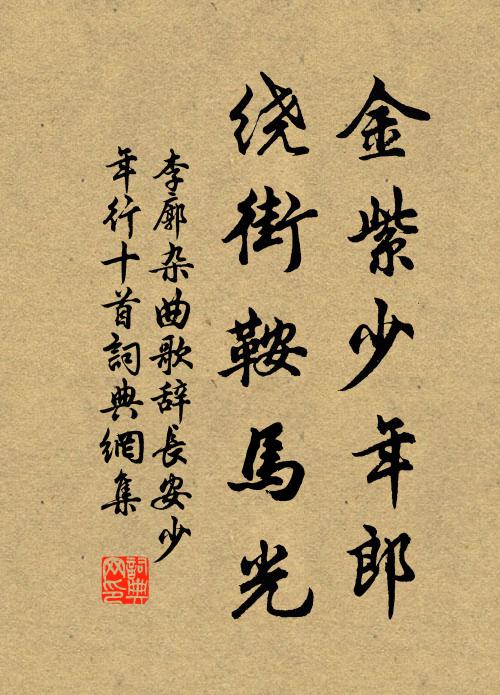 金紫少年郎
绕街鞍馬光
李廓杂曲歌辞長安少
年行十首詞典網集
詞典網印